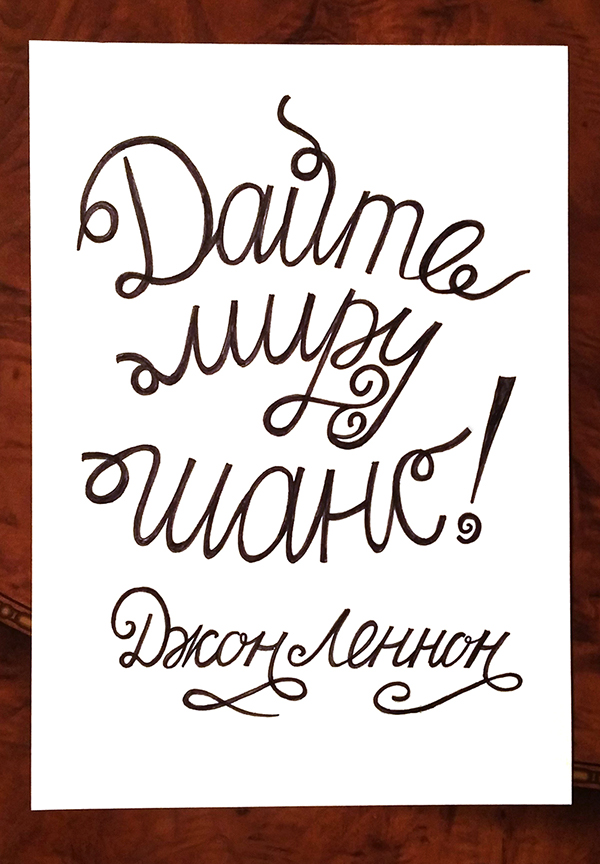 Дайте
миру
шанс!
Джон Леннон